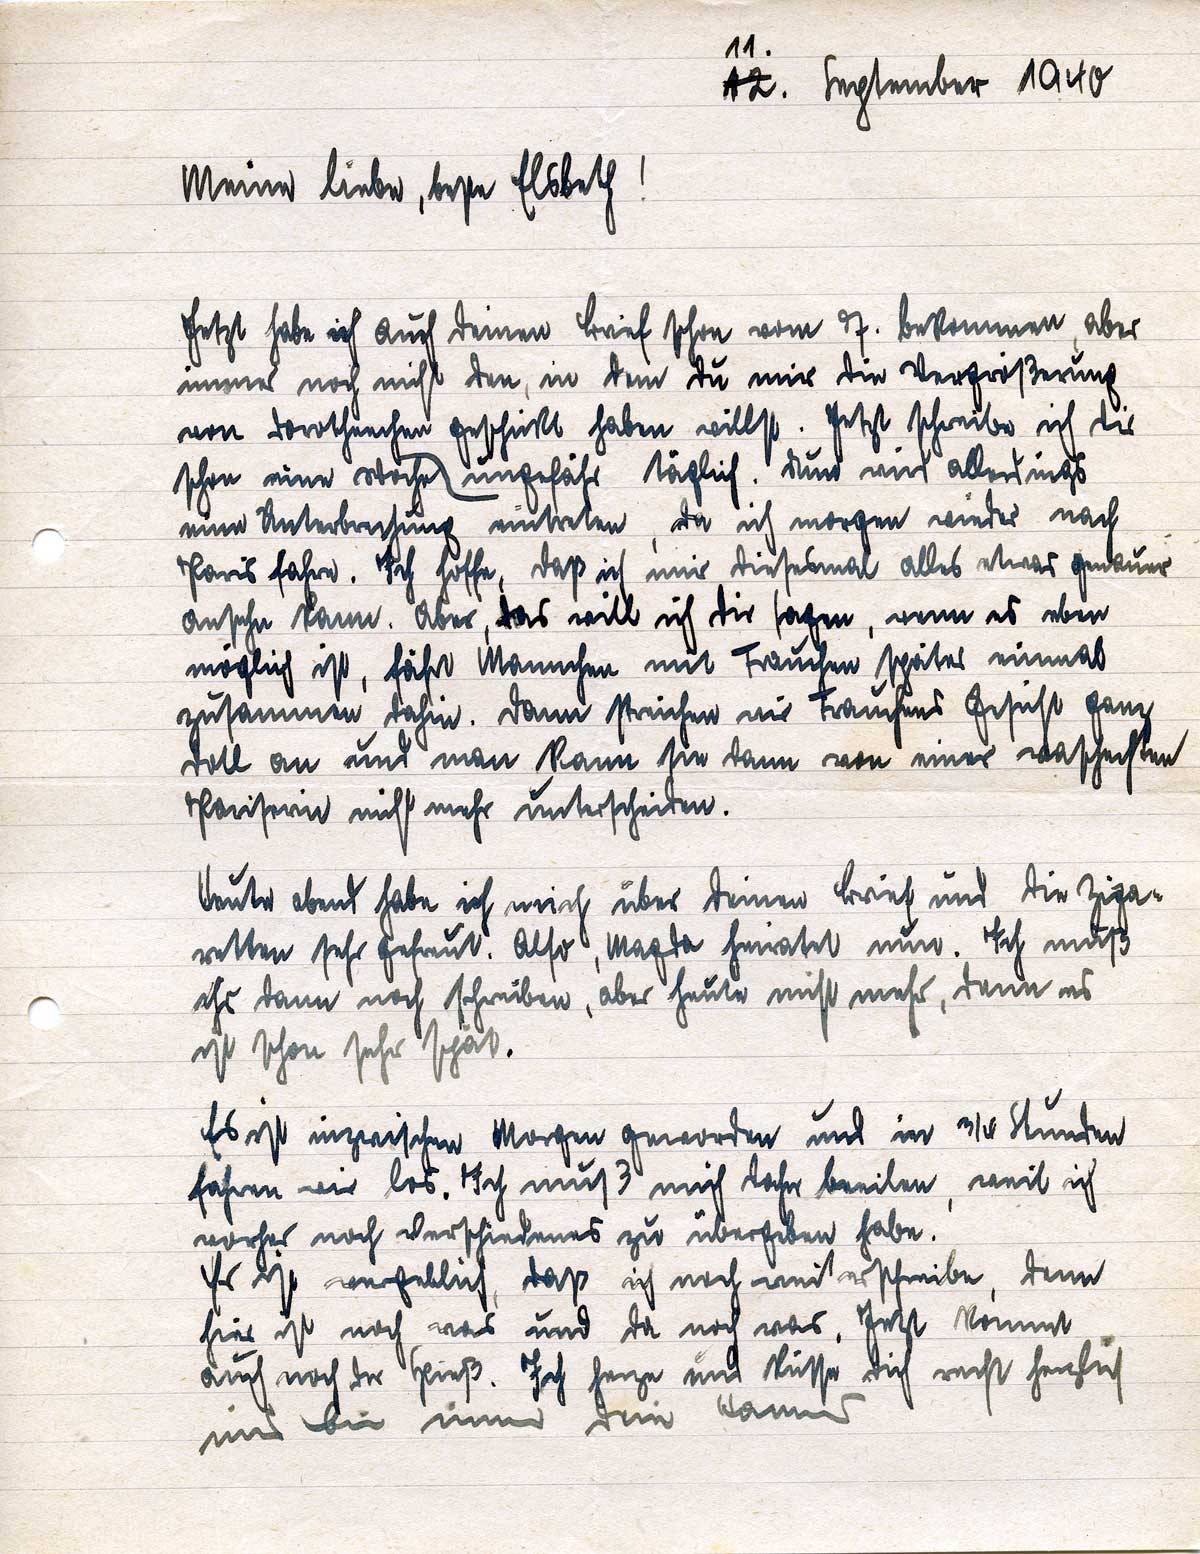 11.
12. September 1940
Meine liebe, beste Elsbeth!
Jetzt habe ich auch Deinen Brief schon vom 7. bekommen, aber
immer noch nicht den, in dem Du mir die Vergrößerung
von Dorotheechen geschickt haben willst. Jetzt schreibe ich Dir
schon eine Woche ungefähr täglich. Nun wird allerdings
eine Unterbrechung eintreten, da ich morgen wieder nach
Paris fahre. Ich hoffe, daß ich mir diesesmal alles etwas genauer
ansehn kann. Aber, das will ich Dir sagen, wenn es eben
möglich ist, fährt Mannchen mit Frauchen später einmal
zusammen dahin. Dann streichen wir Frauchens Gesicht ganz
doll an und man kann sie dann von einer waschechten
Pariserin nicht mehr unterscheiden.
Heute abend habe ich mich über Deinen Brief und die Ziga-
retten sehr gefreut. Also, Magda heiratet nun. Ich muß
ihr dann noch schreiben, aber heute nicht mehr, denn es
ist schon sehr spät.
Es ist inzwischen Morgen geworden und in 3/4 Stunden
fahren wir los. Ich muß mich daher beeilen, weil ich
vorher noch Verschiedenes zu übergeben habe.
Es ist vergeblich, daß ich noch weiterschreibe, denn
hier ist noch was und da noch was. Jetzt kommt
auch noch der Spieß. Ich herze und küsse Dich recht herzlich
und bin immer Dein